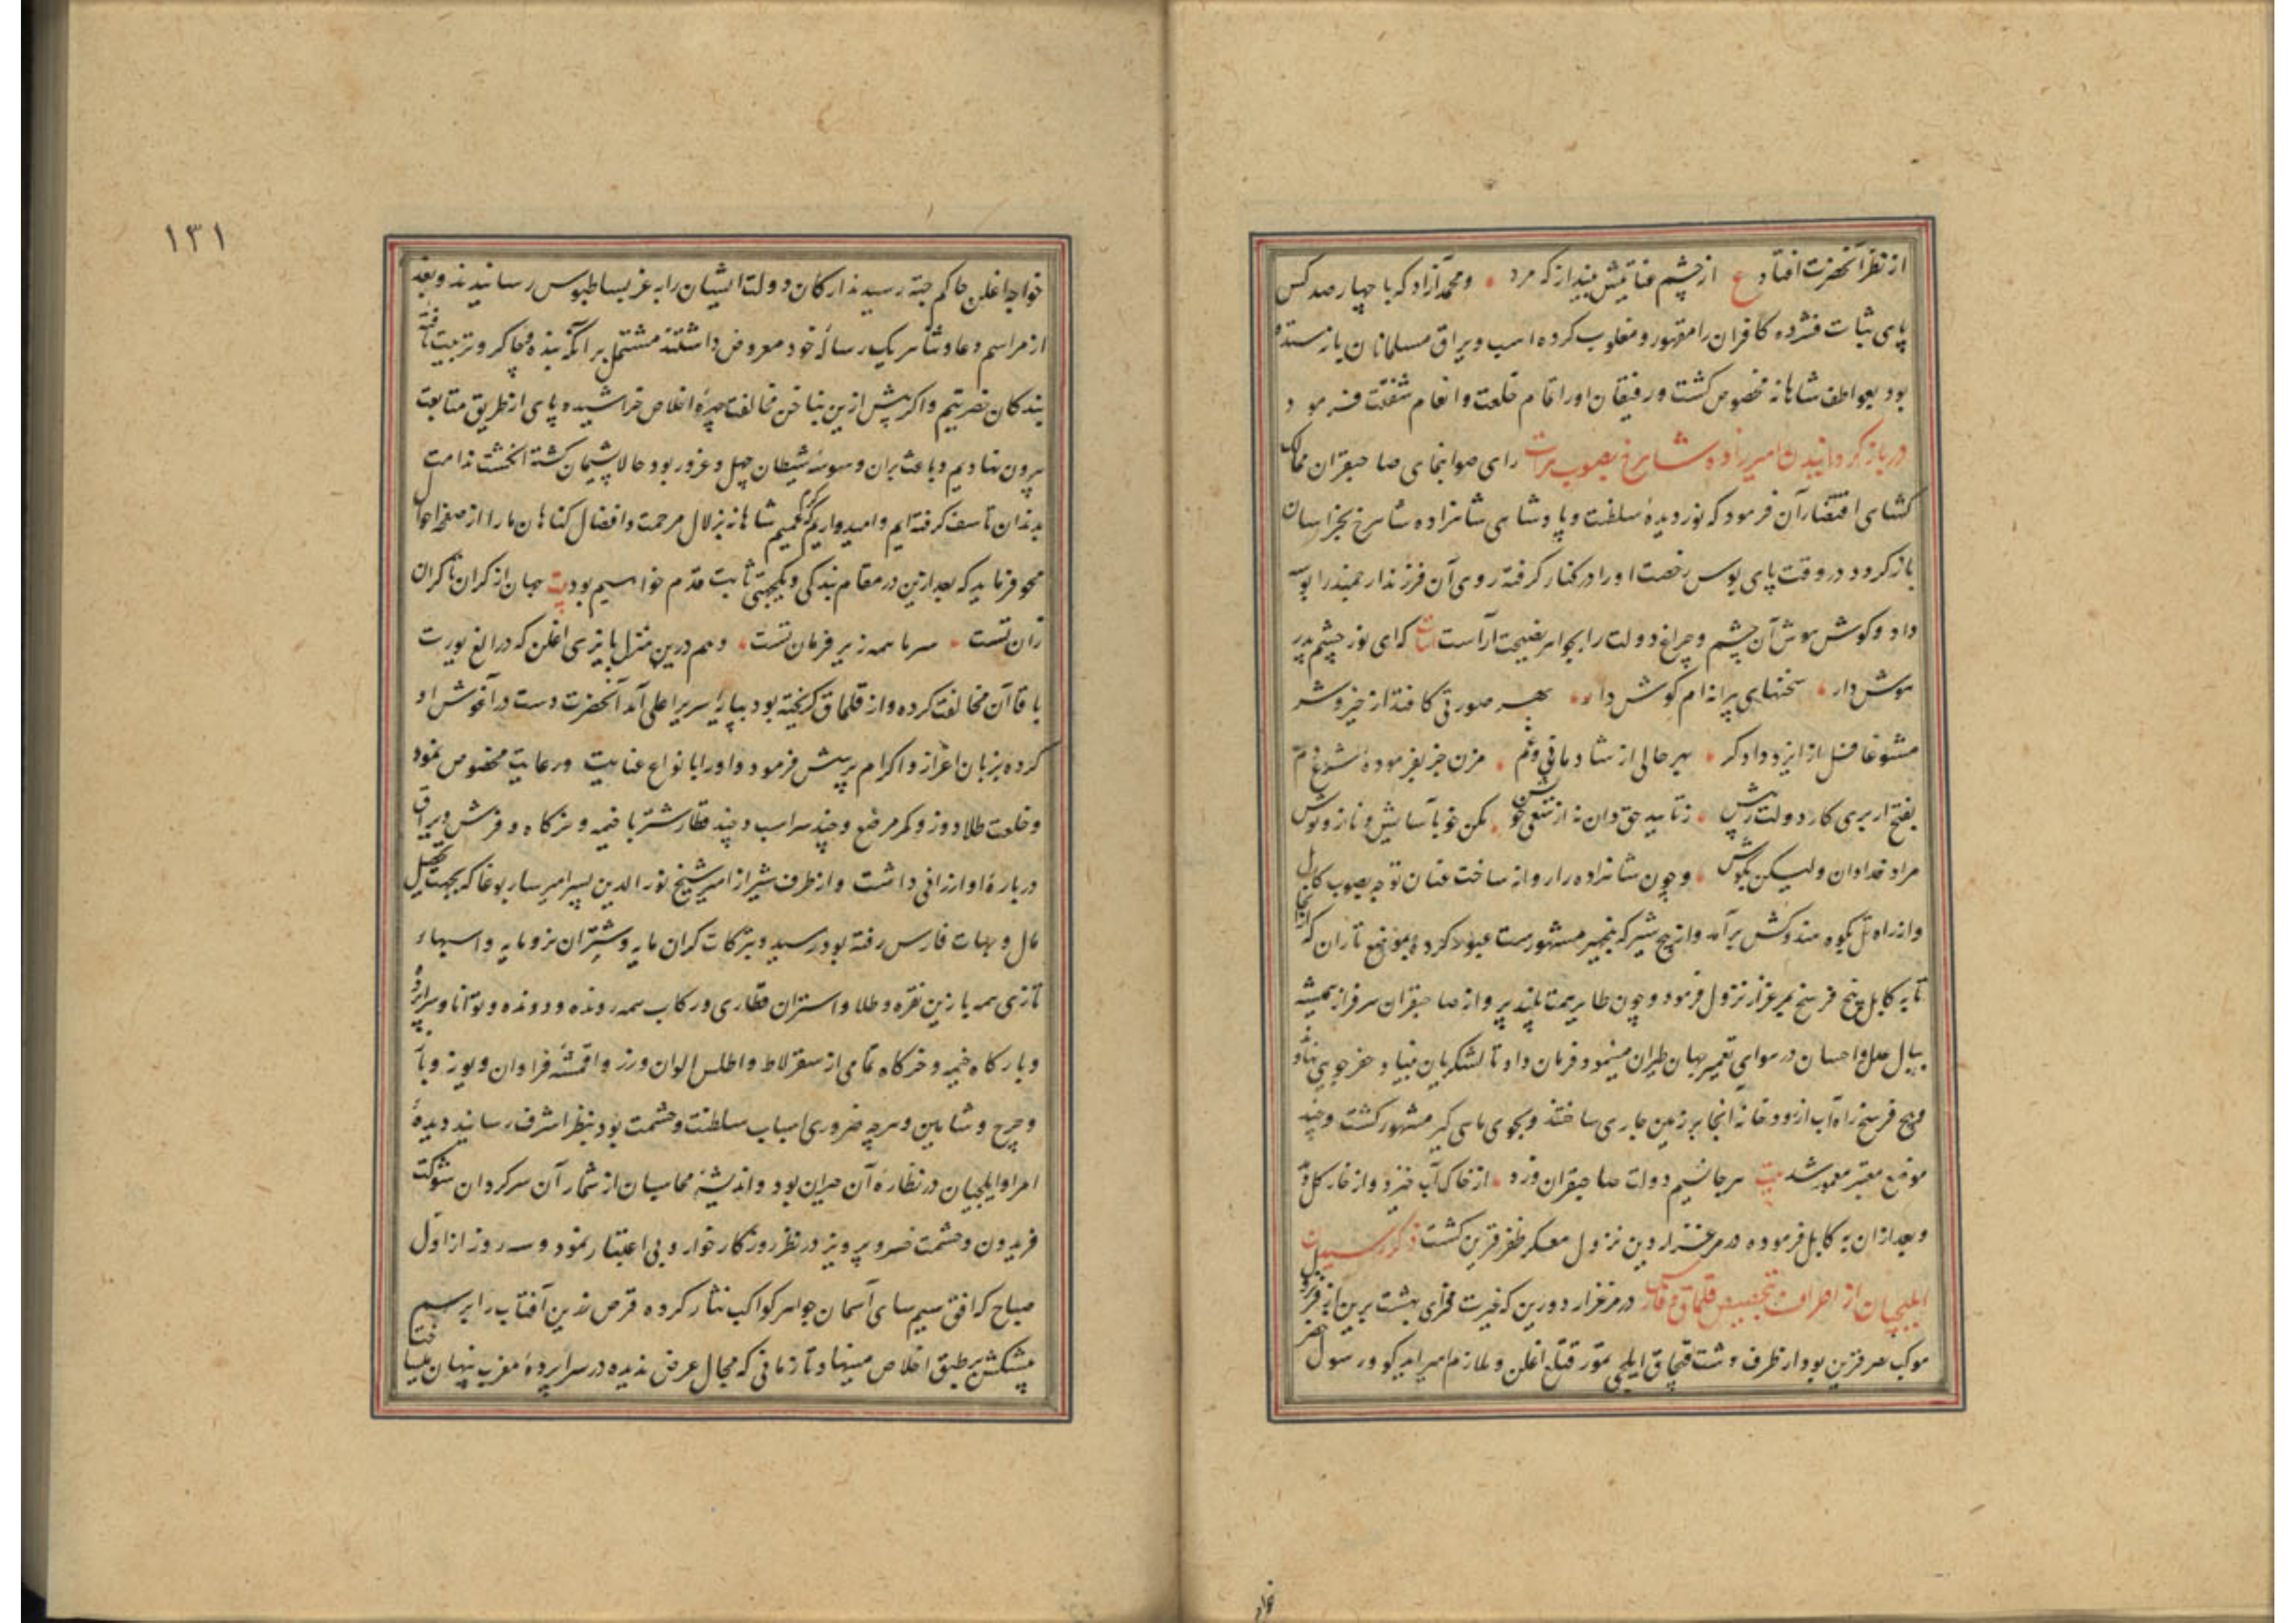 از نظر آنحضرت افتاد ع از چشم عنایتش بینداز که مرد و محمد آزاد که با چهار صد کس
پای ثبات فشرده کافران را مقهور و مغلوب کرده اسب و یراق مسلمانان باز ستده
بود بعواطف شاهانه مخصوص کشت و رفیقان او را تمام خلعت و انعام شفقت فرمود
در باز کردانیدن امیرزاده شاهرخ بصوب هرات رای صوابنمای صاحبقران ممالک
کشای اقتضار آن فرمود که نور دیدهٔ سلطنت و پادشاهی شاهزاده شاهرخ بخراسان
باز کردد در وقت پای بوس رخصت او را در کنار کرفته روی آن فرزند ارجمند را بوسه
داد و کوش هوش آن چشم و چراغ دولت را بجواهر نصیحت آراست ابیات که ای نور چشم پدر
هوش دار سخنهای پرانه ام کوش دار بهر صورتی کافتد از خیر و شر
مشو غافل از ایزد دادکر بهر حالی از شادمانی و غم مزن جز بفرمودهٔ شرع دم
بفتح ار بری کار دولت ز پیش ز تایید حق دان نه از سعی خویش مکن خو بآسایش و ناز و نوش
مراد خدا دان ولیکن بکوش و چون شاهزاده را روانه ساخت عنان توجه بصوب کابل
و از راه تل بکوه هندوکش برآمد و از پنج شیر که بنجهیر مشهورست عبور کرده بموضع تاران که از آنجا
تا به کابل پنج فرسخ مرغزار نزول فرمود و چون طایر همت بلند پرواز صاحبقران سرفراز همیشه
ببال عدل و احسان در هوای تعمیر جهان طیران مینمود فرمان داد تا لشکریان بنیاد حفر جویی نهاده
و پنج فرسخ راه آب از رودخانهٔ آنجا بر زمین جاری ساختند و بجوی ماهی کیر مشهور کشت و چند
موضع معتبر معمور شد بیت هر جا نسیم دولت صاحبقران وزد از خاک آب خیزد و از خار کل دمد
و بعد از آن به کابل فرموده در مرغزار دورین نزول معسکر ظفر قرین کشت ذکر رسیدن
ایلچیان از اطراف و بتخصیص قلماق و فارس در مرغزار دورین که غیرت فزای بهشت برین
موکب نصر قرین بود از طرف دشت قبچاق ایلچی تمور قتلغ اغلن و ملازم امیر ایدکو و رسول خضر
خواجه اغلن حاکم جته رسیدند ارکان دولت ایشان را به عز بساطبوس رسانیدند و بعد
از مراسم دعا و ثنا هر یک رسالهٔ خود معروض داشتند مشتمل بر آنکه بنده و چاکر و تربیت یافته
بندکان حضرتیم و اکر پیش ازین بناخن مخالفت چهرهٔ اخلاص خراشیده پای از طریق متابعت
بیرون نهادیم و باعث بران وسوسهٔ شیطان جهل و غرور بود حالا پشیمان کشته انکشت ندامت
بدندان تاسف کرفته ایم و امیدواریم که کرم عمیم شاهانه بزلال مرحمت و افضال کناهان ما را از صفحهٔ احوال
محو فرماید که بعد ازین در مقام بندکی و یکجهتی ثابت قدم خواهیم بود بیت جهان از کران تا کران
زان تست سر ما همه زیر فرمان تست و هم درین منزل بایزی اغلن که در الغ یورت
با قاآن مخالفت کرده و از قلماق کریخته بود بپایهٔ سریر اعلی آمد آنحضرت دست در آغوش او
کرده بزبان اعزاز و اکرام پرسش فرمود و او را بانواع عنایت و رعایت مخصوص نمود
و خلعت طلادوز و کمر مرصع و چند سر اسب و چند قطار شتر با خیمه و خرکاه و فرش و یراق
دربارهٔ او ارزانی داشت و از طرف شیراز امیر شیخ نور الدین پسر امیر سار بوغا که بجهت تحصیل
مال و جهات فارس رفته بود رسید و تبرکات کران مایه و شتران نر و مایه و اسبهاء
تازی همه با زین نقره و طلا و استران قطاری و رکاب همه رونده و دونده و توانا و سراپرده
و بارکاه خیمه و خرکاه تمامی از سقرلاط و اطلس الوان و رز و اقمشهٔ فراوان و یوز و باز
و چرخ و شاهین و هرچه ضروری اسباب سلطنت و حشمت بود بنظر اشرف رسانید دیدهٔ
امرا و ایلچیان در نظارهٔ آن حیران بود و اندیشهٔ محاسبان از شمار آن سرکردان شوکت
فریدون و حشمت خسرو پرویز در نظر روزکار خوار و بی اعتبار نمود و سه روز از اول
صباح که افق سیم سای آسمان جواهر کواکب نثار کرده قرص زرین آفتاب را برسم
پیشکش بر طبق اخلاص مینهاد تا زمانی که مجال عرض ندیده در سراپردهٔ مغرب پنهان میساخت
۱۳۱